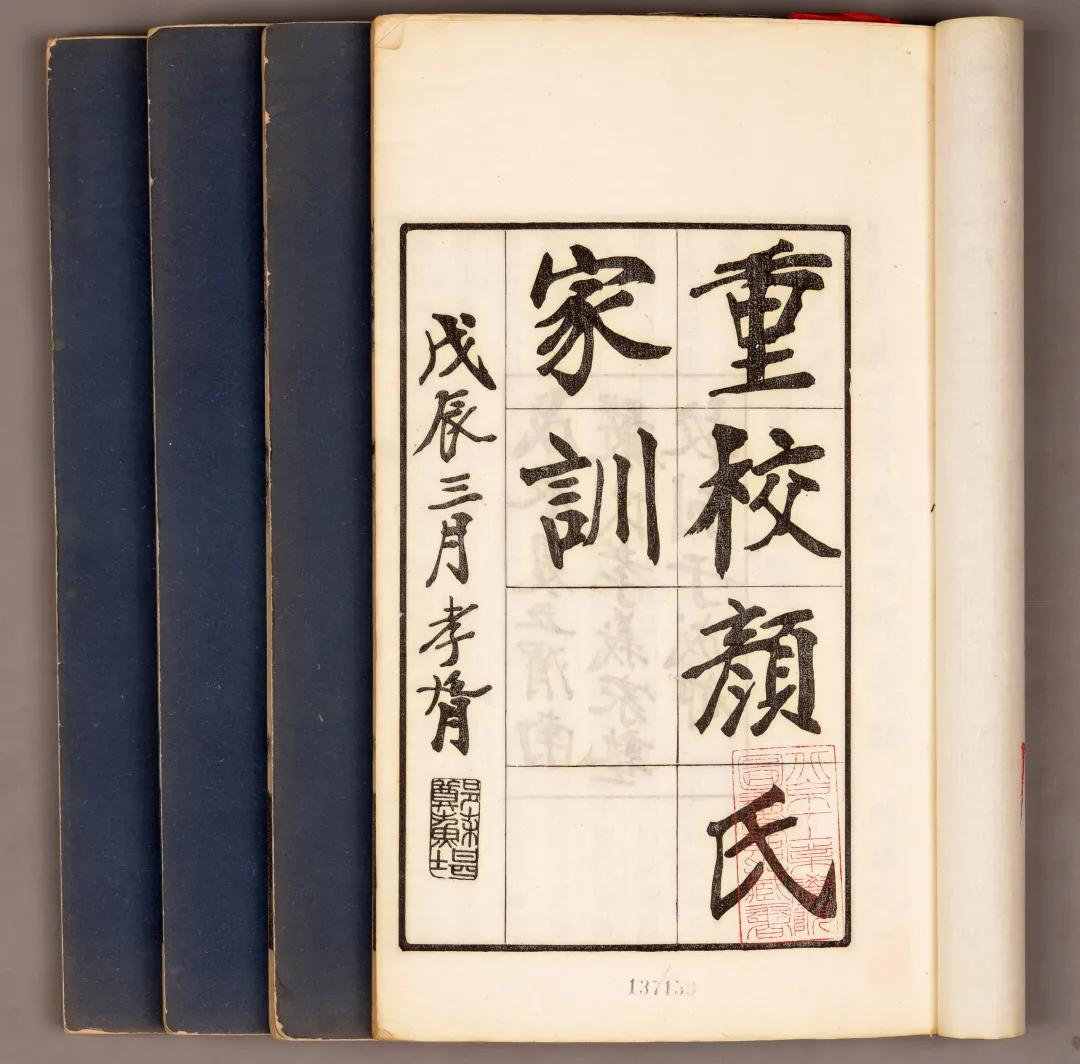 重校顏氏
家訓
戊辰三月孝胥
137139